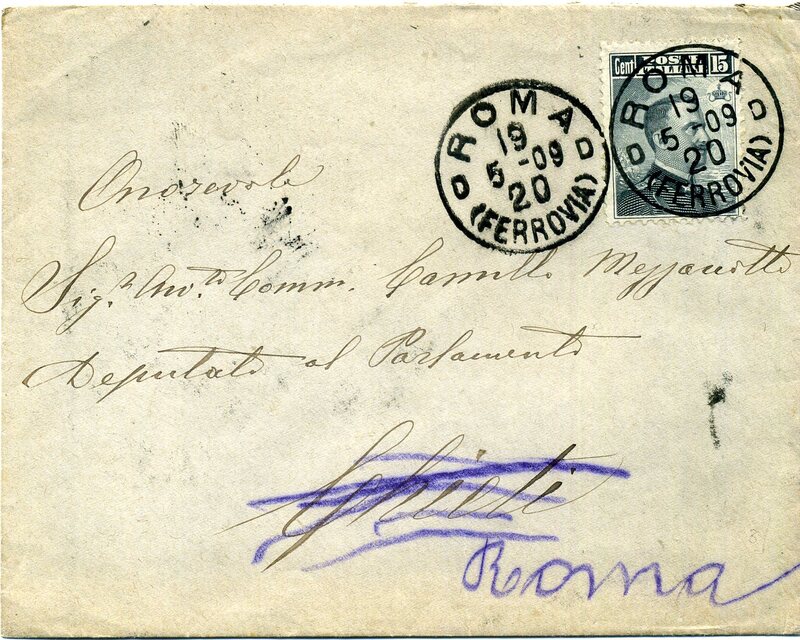 Cent. POSTE ITALIANE 15
ROMA
19
5 - 09
20
(FERROVIA)
ROMA
19
5 - 09
20
(FERROVIA)
Onorevole
Sig.r Avv.to Comm. Camillo Mezzanotte
Deputato al Parlamento
Chieti
Roma